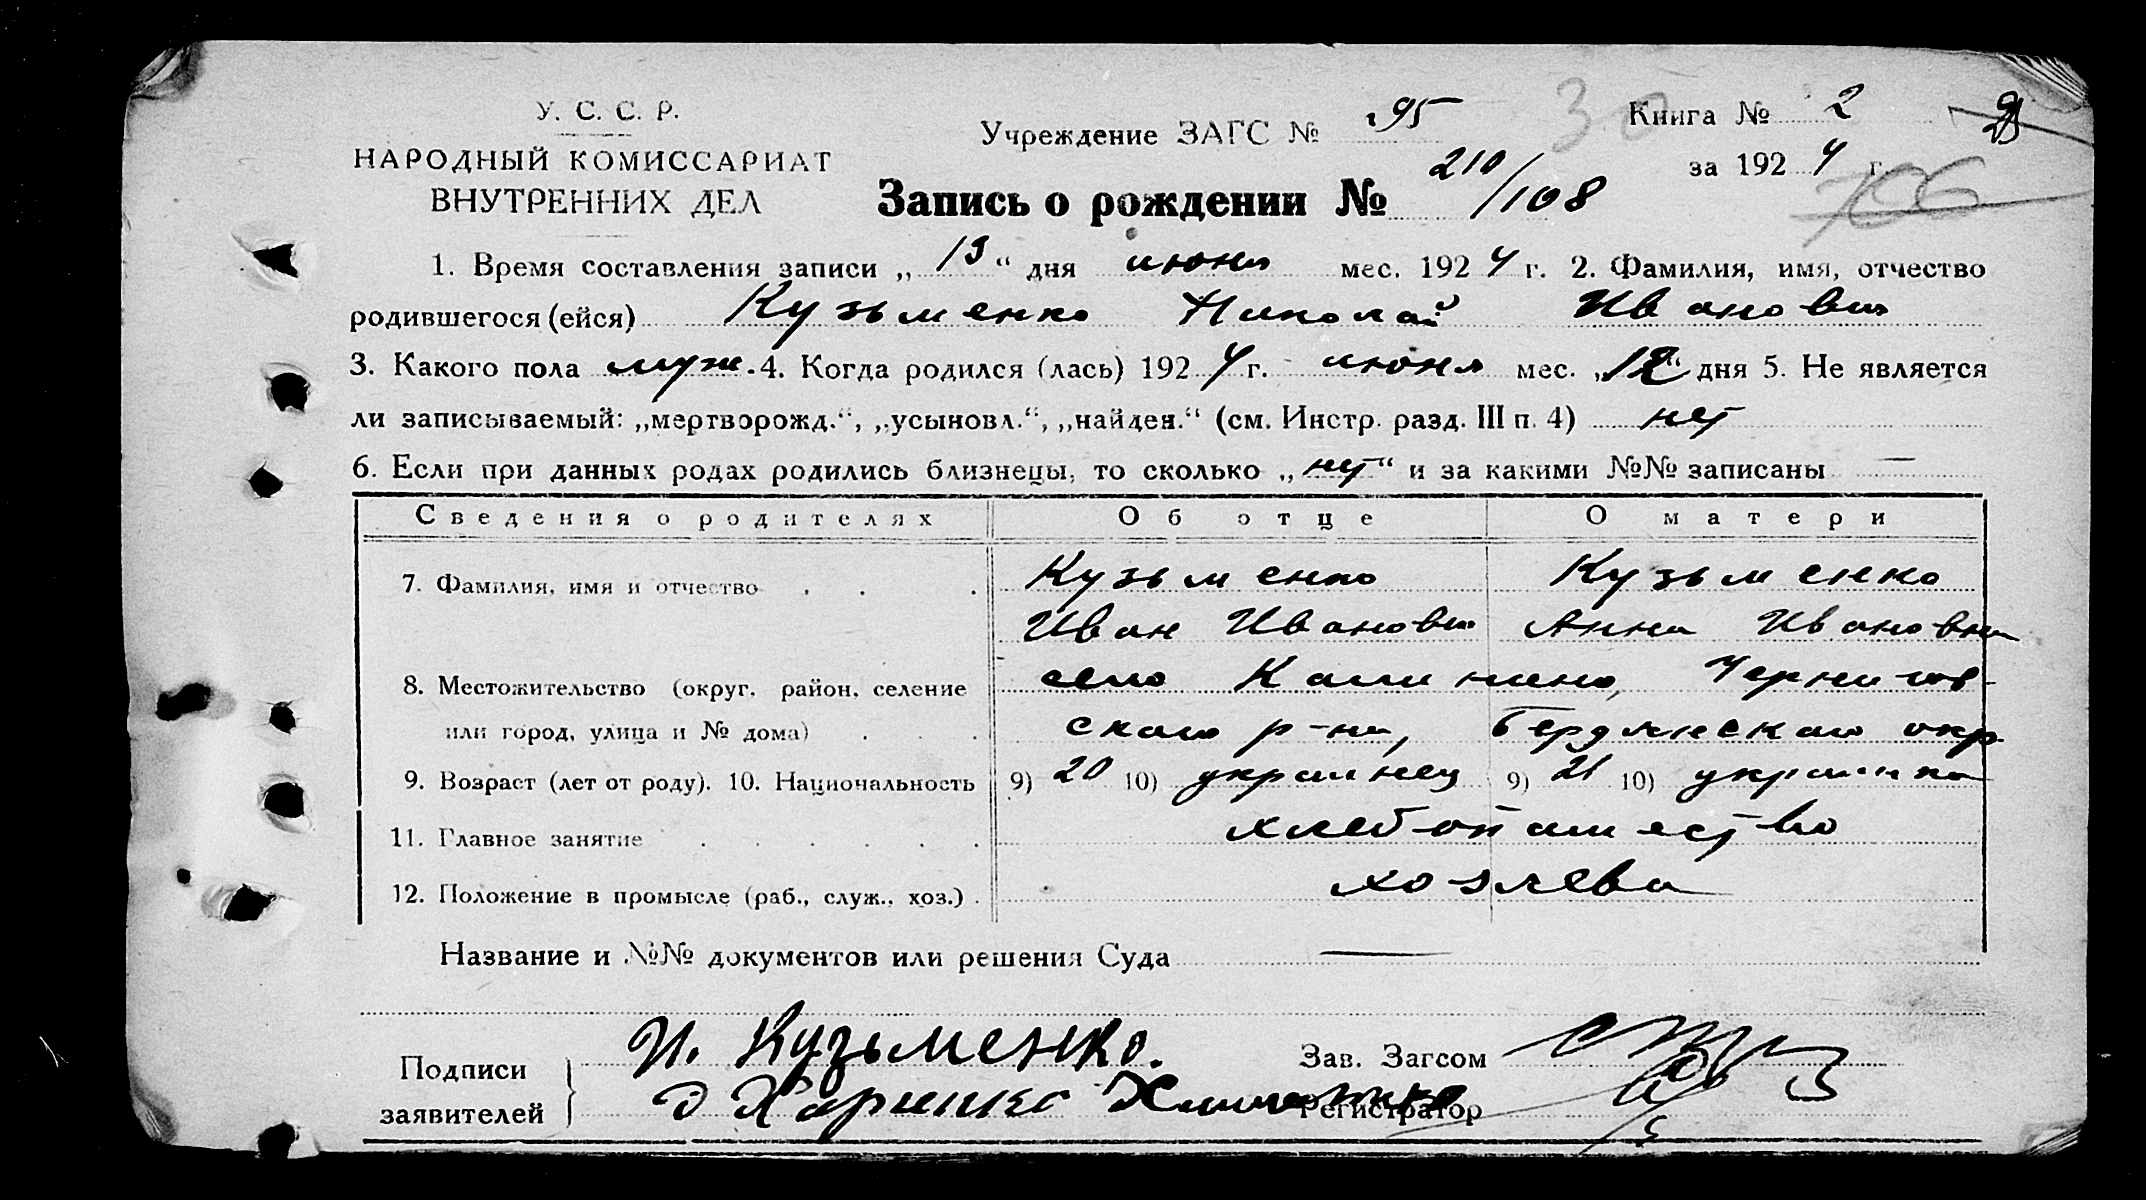 У. С. С. Р.
НАРОДНЫЙ КОМИССАРИАТ
ВНУТРЕННИХ ДЕЛ
Учреждение ЗАГС № 95
30
Книга № 2
за 1924 г.
106
Запись о рождении № 210/108
1. Время составления записи „13“ дня июня мес. 1924 г. 2. Фамилия, имя, отчество
родившегося (ейся) Кузьменко Николай Иванович
3. Какого пола муж. 4. Когда родился (лась) 1924 г. июня мес. „12“ дня 5. Не является
ли записываемый: „мертворожд.“, „усыновл.“, „найден.“ (см. Инстр. разд. III п. 4) нет
6. Если при данных родах родились близнецы, то сколько „нет“ и за какими №№ записаны —
Сведения о родителях Об отце О матери
7. Фамилия, имя и отчество . . . Кузьменко Кузьменко
Иван Иванович Анна Ивановна
8. Местожительство (округ, район, селение село Калинино, Чернигов-
или город, улица и № дома) . . . ского р-на, Бердянского окр.
9. Возраст (лет от роду). 10. Национальность 9) 20 10) украинец 9) 21 10) украинка
11. Главное занятие . . . . . . хлебопашество
12. Положение в промысле (раб., служ., хоз.) . хозяева
Название и №№ документов или решения Суда —
Подписи
заявителей
И. Кузьменко.
Зав. Загсом
Регистратор